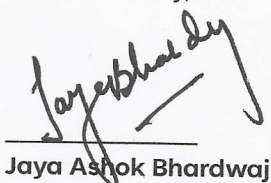 JayeBhardy
Jaya Ashok Bhardwaj